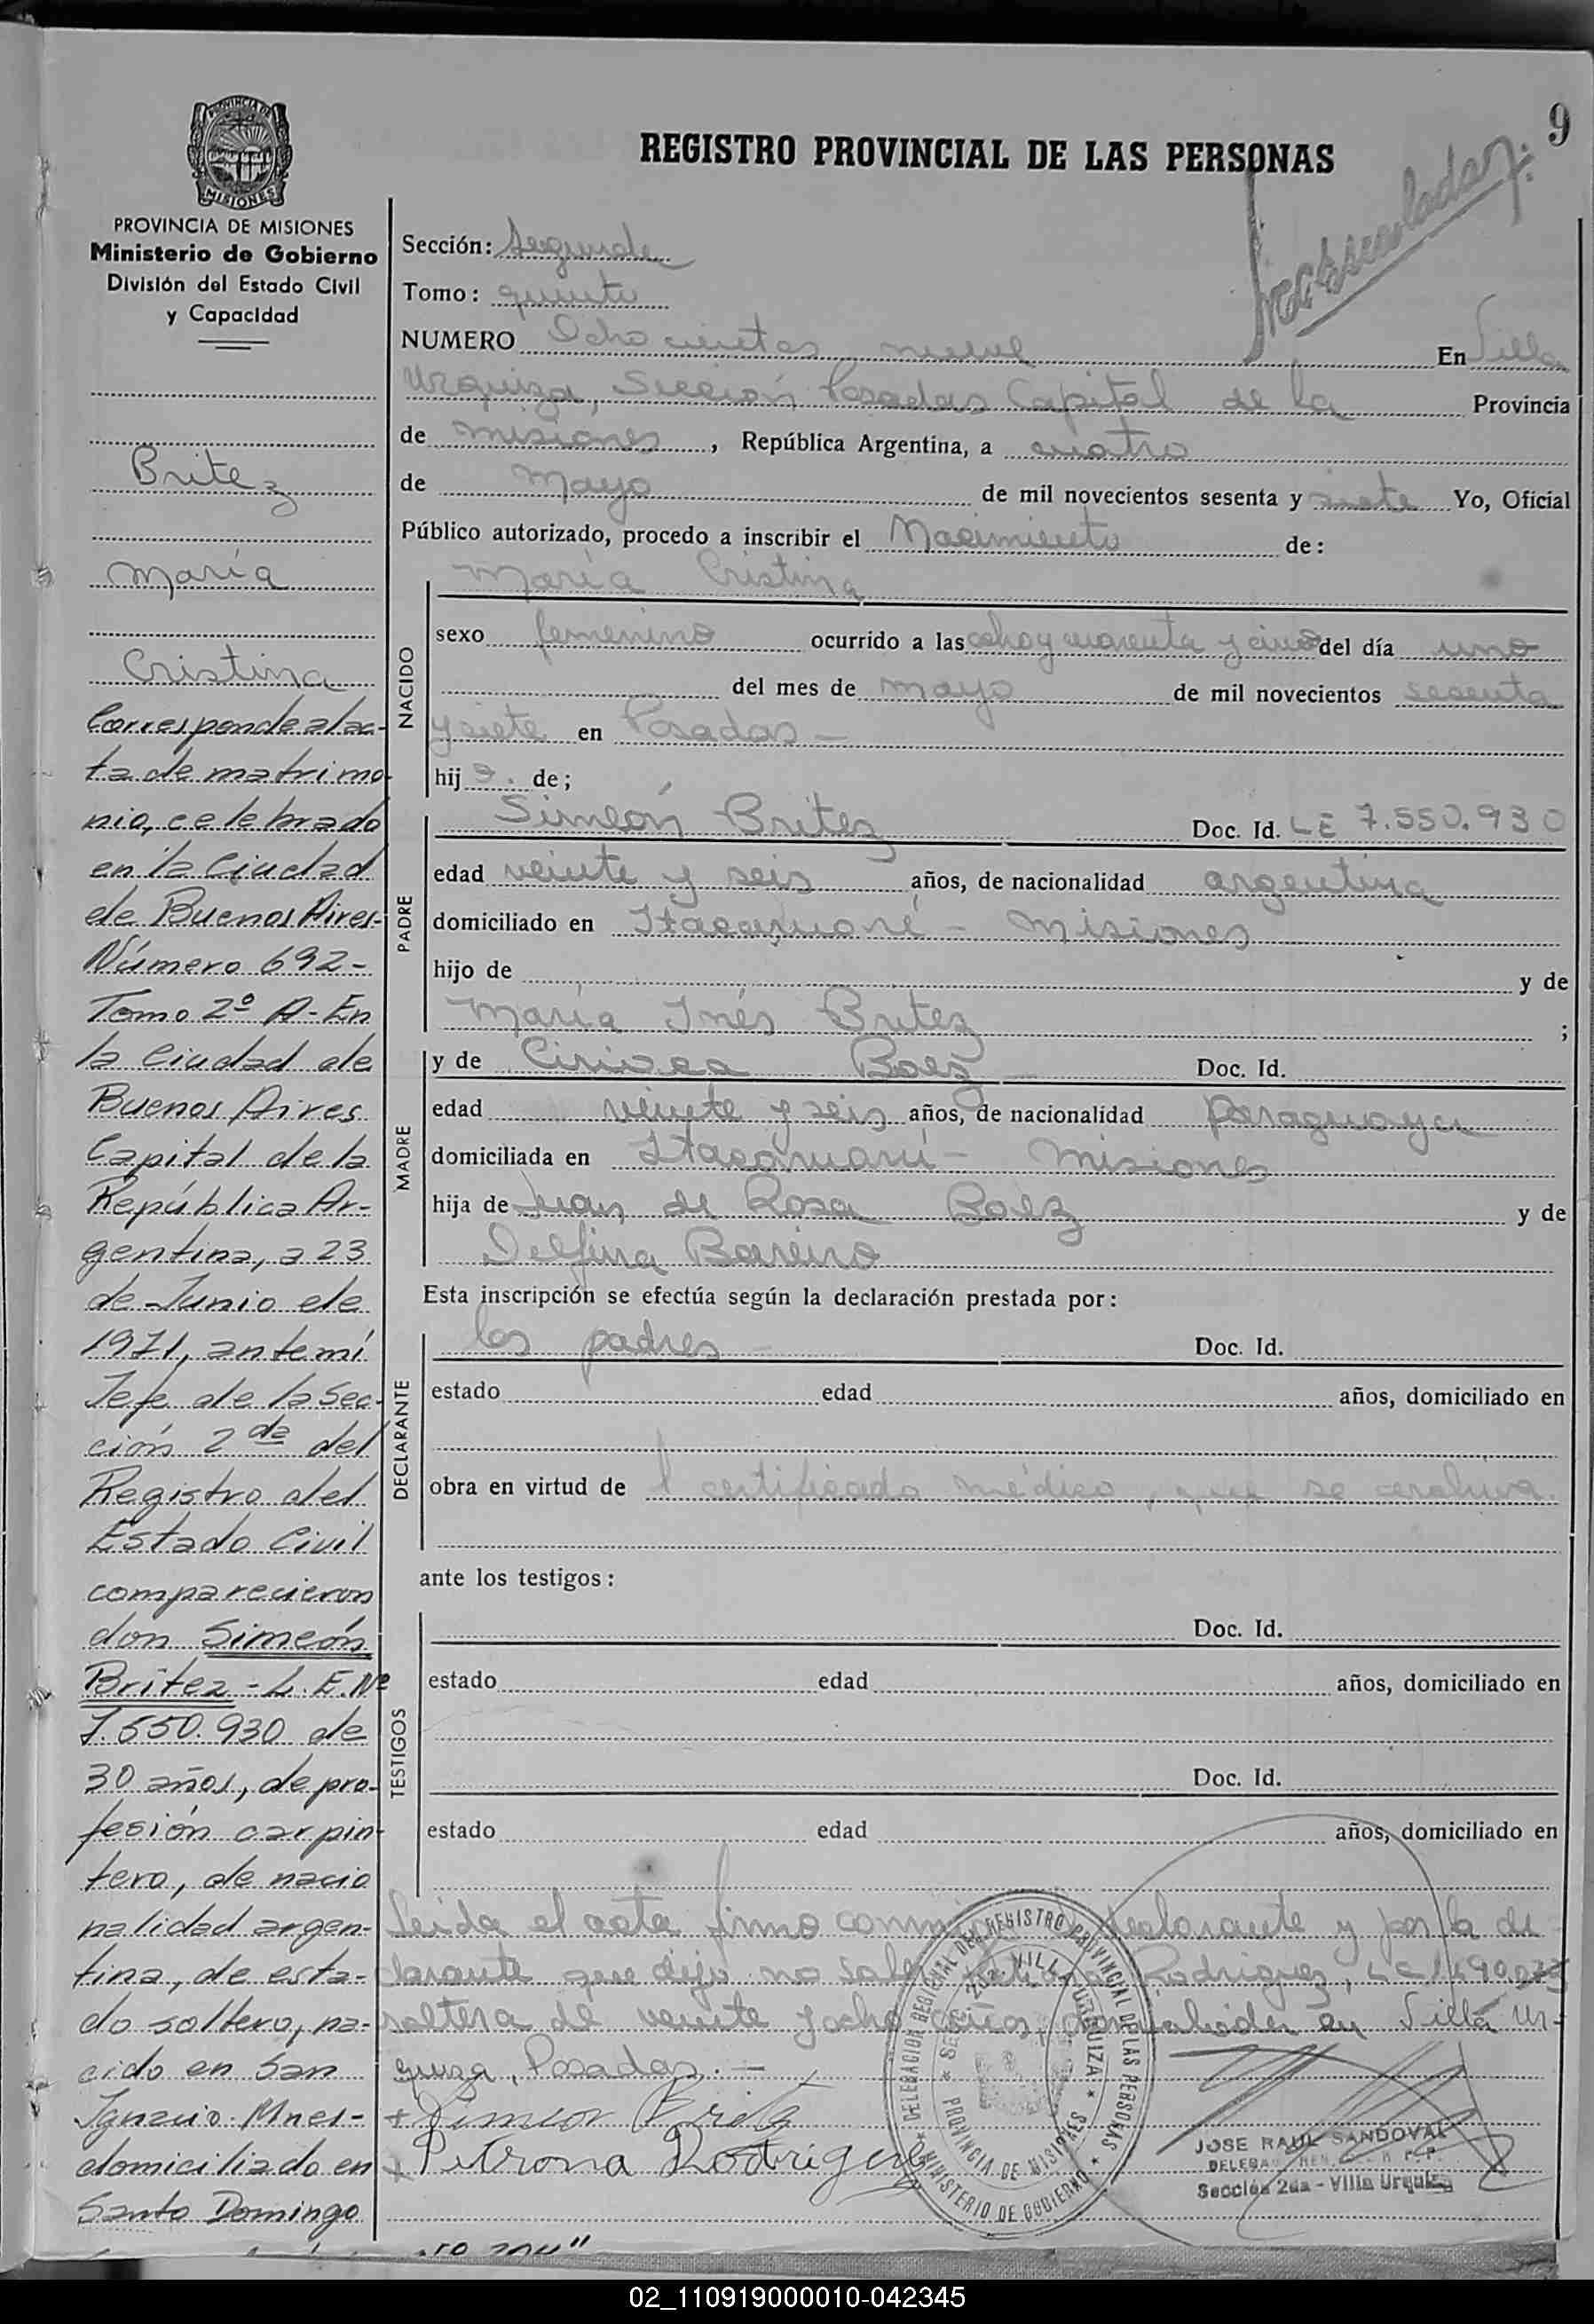 9
REGISTRO PROVINCIAL DE LAS PERSONAS
PROVINCIA DE MISIONES
Ministerio de Gobierno
División del Estado Civil
y Capacidad
Britez
María
Cristina
Corresponde al ac-
ta de matrimo-
nio, celebrado
en la Ciudad
de Buenos Aires-
Número 692-
Tomo 2º A-En
la Ciudad de
Buenos Aires
Capital de la
República Ar-
gentina, a 23
de Junio de
1971, ante mí
Jefe de la Sec-
ción 2da del
Registro del
Estado Civil
comparecieron
don Simeón
Britez - L. E. Nº
7.550.930 de
30 años, de pro-
fesión carpin-
tero, de nacio
nalidad argen-
tina, de esta-
do soltero, na-
cido en San
Ignacio-Mnes-
domiciliado en
Santo Domingo
Sección: Segunda
Tomo: quinto
NUMERO Ochocientos nueve En Villa
Urquiza, Sección Posadas Capital de la Provincia
de Misiones, República Argentina, a cuatro
de Mayo de mil novecientos sesenta y siete Yo, Oficial
Público autorizado, procedo a inscribir el Nacimiento de:
NACIDO
María Cristina
sexo femenino ocurrido a las ocho y cuarenta y cinco del día uno
del mes de mayo de mil novecientos sesenta
y siete en Posadas -
hija. de;
PADRE
Simeón Britez Doc. Id. LE 7.550.930
edad veinte y seis años, de nacionalidad argentina
domiciliado en Itacaruaré - Misiones
hijo de y de
María Inés Britez ;
MADRE
y de Baez Doc. Id.
edad veinte y seis años, de nacionalidad paraguaya
domiciliada en - Misiones
hija de Juan de Rosa Baez y de
Delfina Bareiro
Esta inscripción se efectúa según la declaración prestada por:
DECLARANTE
los padres Doc. Id.
estado edad años, domiciliado en
obra en virtud de 1 certificado médico, que se archiva.
ante los testigos:
TESTIGOS
Doc. Id.
estado edad años, domiciliado en
Doc. Id.
estado edad años, domiciliado en
Leída el acta firmo conmigo declarante y por la de
clarante que dijo no saber Rodriguez, LC
soltera de veinte y ocho años, domiciliada en Villa Ur-
quiza, Posadas. -
+ Simeon Britez
x Petrona Rodriguez
DELEGACION REGIONAL DEL REGISTRO PROVINCIAL DE LAS PERSONAS
MINISTERIO DE GOBIERNO
SEC. 2da. VILLA URQUIZA
PROVINCIA DE MISIONES
JOSE RAUL SANDOVAL
Sección 2da - Villa Urquiza
02_110919000010-042345